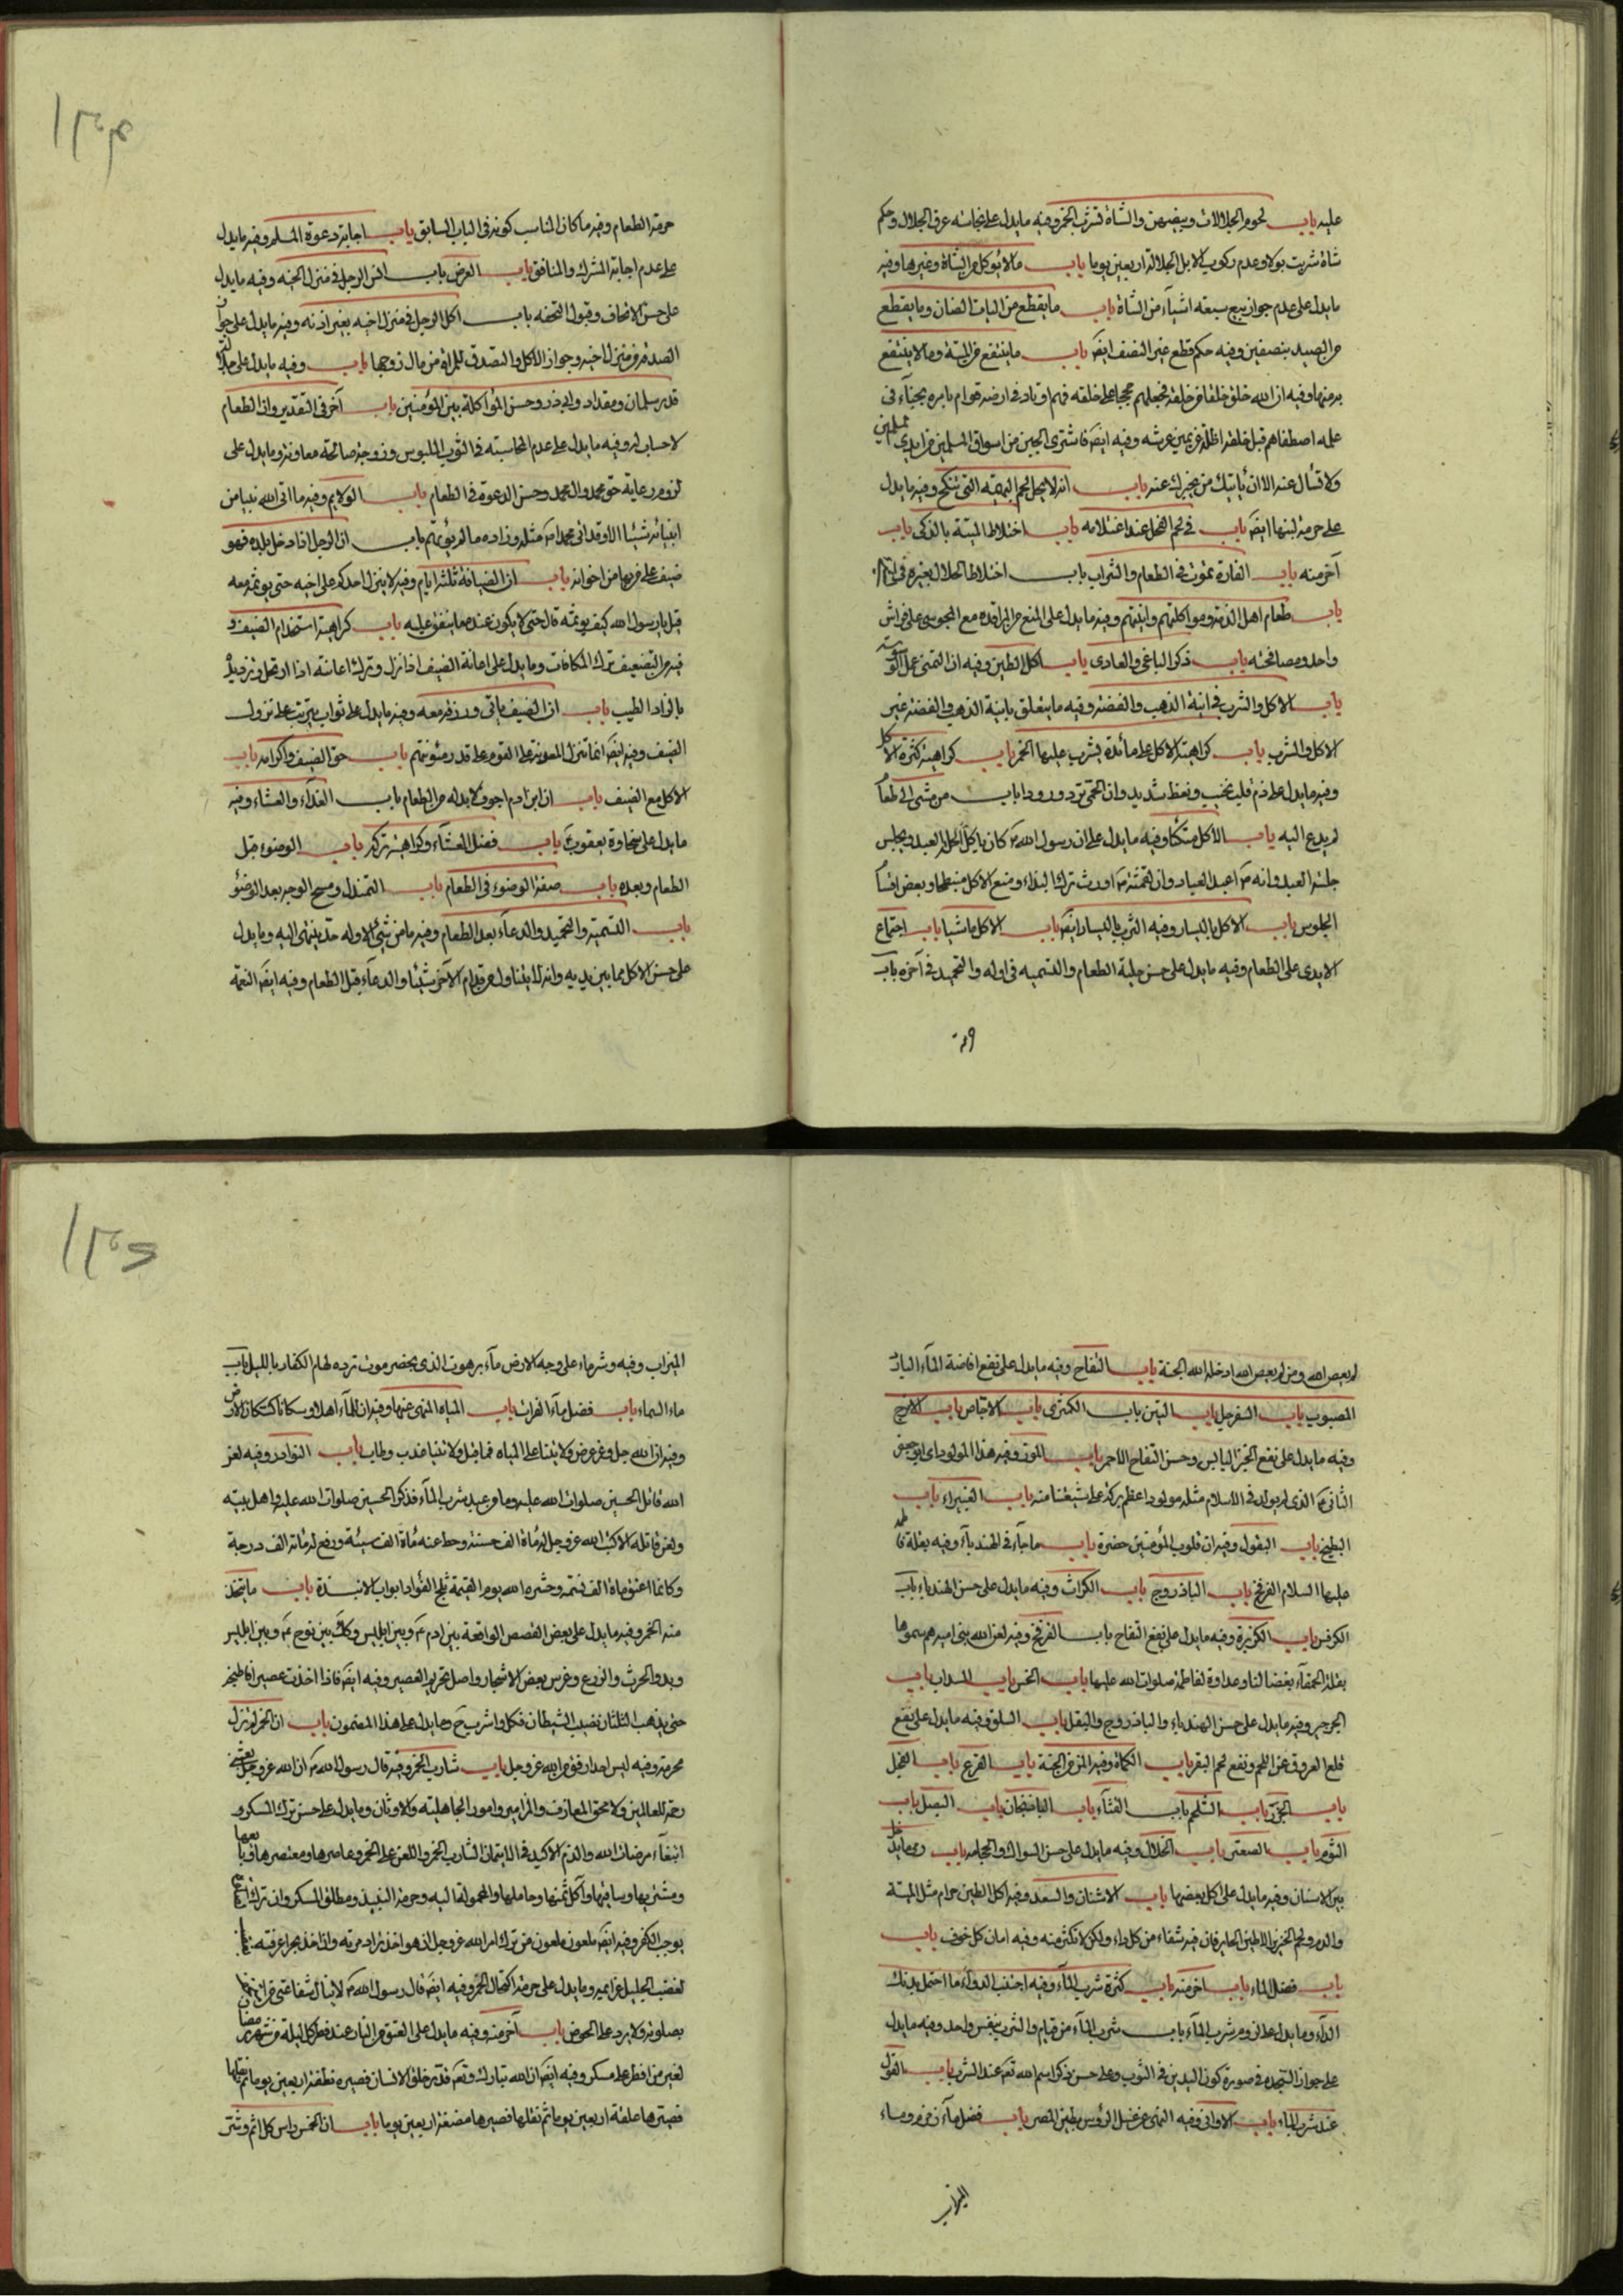 عليه باب لحوم الجلالات وبيضهن والشاة تشرب الخمر وفيه مايدل على نجاسة عرق الجلال وحكم
شاة شربت بولا وعدم ركوب الابل الجلالة اربعين يوما باب مالا يؤكل من الشاة وغيرها وفيه
مايدل على عدم جواز بيع سبعة اشيآء من الشاة باب مايقطع من اليات الضان ومايقطع
من الصيد بنصفين وفيه حكم قطع غير النصف ايضَ باب ماينتفع من الميتة ومالا ينتفع
به منها وفيه ان الله خلق خلقا من خلقه فجعلهم حججا على خلقه فهم اوتاد في ارضه قوام بامره نجبآء في
علمه اصطفاهم قبل خلقه اظلة عن يمين عرشه وفيه ايضَ فاشترى الجبن من اسواق المسلمين من ايدي مسلمين
ولا تسأل عنه الا ان يأتيك من يخبرك عنه باب انه لا يحل لحم البهيمة التي تنكح وفيه مايدل
على حرمة لبنها ايضَ باب في لحم الفحل عند اغتلامه باب اختلاط الميتة بالذكى باب
آخر منه باب الفارة تموت في الطعام والشراب باب اختلاط الحلال بغيره في
باب طعام اهل الذمة ومواكلتهم وآنيتهم وفيه مايدل على المنع من المراقدة مع المجوسي على فراش
واحد ومصافحته باب ذكر الباغي والعادى باب اكل الطين وفيه ان التمنى عمل الوسوسة
باب الاكل والشرب في انية الذهب والفضة وفيه مايتعلق بانية الذهب والفضة غير
الاكل والشرب باب كراهية الاكل على مائدة يشرب عليها الخمر باب كراهية كثرة الاكل
وفيه مايدل على ذم قلب نخيب ونعظ شديد وان الحمى تزد ورودا باب من مشى الى طعام
لم يدع اليه باب الاكل متكئا وفيه مايدل على ان رسول الله ص كان ياكل اكل العبد ويجلس
جلسة العبد وانه ص اعبد العباد وان التمتنه ص اورث ترك البذاء ومنع الاكل منبطحا وبعض اقسام
الجلوس باب الاكل باليسار وفيه الشرب باليسار ايضَ باب الاكل ماشيا باب اجتماع
الايدى على الطعام وفيه مايدل على حسن جلية الطعام والتسميه في اوله والتحميد في آخره باب
حرمة الطعام وفيه ما كان المناسب كونه في الباب السابق باب اجابة دعوة المسلم وفيه مايدل
على عدم اجابة المشرك والمنافق باب العرض باب انس الرجل في منزل اخيه وفيه مايدل
على حسن الاتحاف وقبول التحفه باب اكل الرجل في منزل اخيه بغير اذنه وفيه مايدل على جواز
الصدقه من منزل اخيه وجواز الاكل والتصدق للمراة من مال زوجها باب وفيه مايدل على جلالة
قدر سلمان ومقداد وابيذر وحسن المؤاكلة بين المؤمنين باب آخر في التقدير وان الطعام
لا حساب له وفيه مايدل على عدم المحاسبته في الثوب الملبوس وزوجة صالحة معاونة ومايدل على
لزوم رعاية حق محمد وال محمد وحسن الدعوة في الطعام باب الولايم وفيه ما اتى الله نبيا من
انبيائه شيئا الا وقد اتى محمدا ص مثله وزاده مالم يؤتهم باب ان الرجل اذا دخل بلدة فهو
ضيف على من بها من اخوانه باب ان الضيافة ثلثة ايام وفيه لا ينزل احدكم على اخيه حتى يوثمه معه
قيل يارسول الله كيف يوثمه قال حتى لا يكون عنده ماينفق عليه باب كراهية استخدام الضيف و
فيه من التضعيف ترك المكافات ومايدل على اعانة الضيف اذا نزل وترك اعانته اذا ارتحل وتزويده
بالزاد الطيب باب ان الضيف ياتى ورزقه معه وفيه مايدل على ثواب يترتب على نزول
الضيف وفيه ايضَ انما تنزل المعونة على القوم على قدر مئونتهم باب حق الضيف واكرامه باب
الاكل مع الضيف باب ان ابن ادم اجوف لابد له من الطعام باب الغدآء والعشاء وفيه
مايدل على سخاوة يعقوب باب فضل العشآء وكراهية تركه باب الوضوء قبل
الطعام وبعده باب صفة الوضوء في الطعام باب التمندل ومسح الوجه بعد الوضوء
باب التسمية والتحميد والدعآء بعد الطعام وفيه مامن شئ الا وله حد ينتهى اليه ومايدل
على حسن الاكل مما بين يديه وانه لا يتناول من قدام الآخر شيئا والدعآء قبل الطعام وفيه ايضَ النعمة
لم يعص الله ومن لم يعص الله ادخله الله الجنة باب التفاح وفيه مايدل على نفع افاضة المآء البارد
المصبوب باب السفرجل باب التين باب الكمثرى باب الاجاص باب الاترج
وفيه مايدل على نفع الخبز اليابس وحسن التفاح الاحمر باب الموز وفيه هذا المولود اى ابو جعفر
الثانى ع الذى لم يولد في الاسلام مثله مولود اعظم بركة على شيعتنا منه باب الغبيراء باب
البطيخ باب البقول وفيه ان قلوب المؤمنين خضرة باب ماجآء في الهندبآء وفيه بقلة فاطمة
عليها السلام الفرفخ باب الباذروج باب الكراث وفيه مايدل على حسن الهندباء باب
الكرفس باب الكزبرة وفيه مايدل على نفع التفاح باب الفرفخ وفيه لعن الله بنى اميه هم سموها
بقلة الحمقآء بغضا لنا وعداوة لفاطمة صلوات الله عليها باب الخس باب السداب باب
الجرجير وفيه مايدل على حسن الهندباء والباذروج والبقل باب السلق وفيه مايدل على نفع
قلع العروق عن اللحم ونفع لحم البقر باب الكماة وفيه المن من الجنة باب القرع باب الفجل
باب الجزر باب الشلجم باب القثآء باب الباذنجان باب البصل باب
الثوم باب الصعتر باب الخلال وفيه مايدل على حسن السواك والحجامه باب رمى مايدخل
بين الاسنان وفيه مايدل على اكل بعضها باب الاشنان والسعد وفيه اكل الطين حرام مثل الميتة
والدم ولحم الخنزير الا طين الحاير فان فيه شفاء من كل داء ولكن لا تكثر منه وفيه امان كل خوف باب
باب فضل الماء باب اخر منه باب كثرة شرب المآء وفيه اجتنب الدوآء ما احتمل بدنك
الدآء ومايدل على لزوم شرب المآء باب شرب المآء من قيام والشرب بنفس واحد وفيه مايدل
على جواز السجده في صورة كون اليدين في الثوب وعلى حسن ذكر اسم الله تعَ عند الشرب باب القول
عند شرب المآء باب الاوانى وفيه النهى عن غسل الرؤس بطين المصر باب فضل مآء زمزم وماء
الميزاب
الميزاب وفيه وشر ماء على وجه الارض مآء برهوت الذى بحضرموت ترده هام الكفار بالليل باب
ماء السماء باب فضل مآء الفرات باب المياه المنهى عنها وفيه ان للمآء اهلا وسكانا كسكان الارض
وفيه ان الله جل وعز عرض ولايتنا على المياه فما قبل ولايتنا عذب وطاب باب النوادر وفيه لعن
الله قاتل الحسين صلوات الله عليه ومامن عبد شرب المآء فذكر الحسين صلوات الله عليه واهل بيته
ولعن قاتله الا كتب الله عز وجل له مائة الف حسنة وحط عنه مائة الف سيئة ورفع له مائة الف درجة
وكانما اعتق مائة الف نسمة وحشره الله يوم القيمة ثلج الفؤاد ابواب الانبذة باب مايتخذ
منه الخمر وفيه مايدل على بعض القصص الواقعة بين ادم عَ وبين ابليس وكذا بين نوح عَ وبين ابليس
وبدو الحرث والزرع وغرس بعض الاشجار واصل تحريم العصير وفيه ايضَ فاذا اخذت عصيرا فاطبخه
حتى يذهب الثلثان نصيب الشيطان فكل واشرب حَ ومايدل على هذا المضمون باب ان الخمر لم تزل
محرمة وفيه ليس احد ارفق من الله عز وجل باب شارب الخمر وفيه قال رسول الله ص ان الله عز وجل بعثنى
رحمة للعالمين ولامحق المعازف والمزامير وامور الجاهلية والاوثان ومايدل على حسن ترك المسكر و
ابتغآء مرضات الله والذم الاكيد في الايتمان لشارب الخمر واللعن على الخمر وعاصرها ومعتصرها وبايعها
ومشتريها وساقيها وآكل ثمنها وحاملها والمحمولة اليه وحرمة النبيذ ومطلق المسكر وان ترك
يوجب الكفر وفيه ايضَ ملعون ملعون من ترك امر الله عز وجل
لغضب الجليل ومايدل على حرمة اكتحال الخمر وفيه ايضَ قال رسول الله ص لا ينال شفاعتى من استخف
بصلوته ولا يرد على الحوض باب آخر منه وفيه مايدل على العتق من النار عند فطر كل ليلة من شهر رمضان
لغير من افطر على مسكر وفيه ايضَ ان الله تبارك وتعَ قدر خلق الانسان فصيره نطفة اربعين يوما ثم نقلها
فصيرها علقة اربعين يوما ثم نقلها فصيرها مضغة اربعين يوما باب ان الخمر راس كل اثم وشر